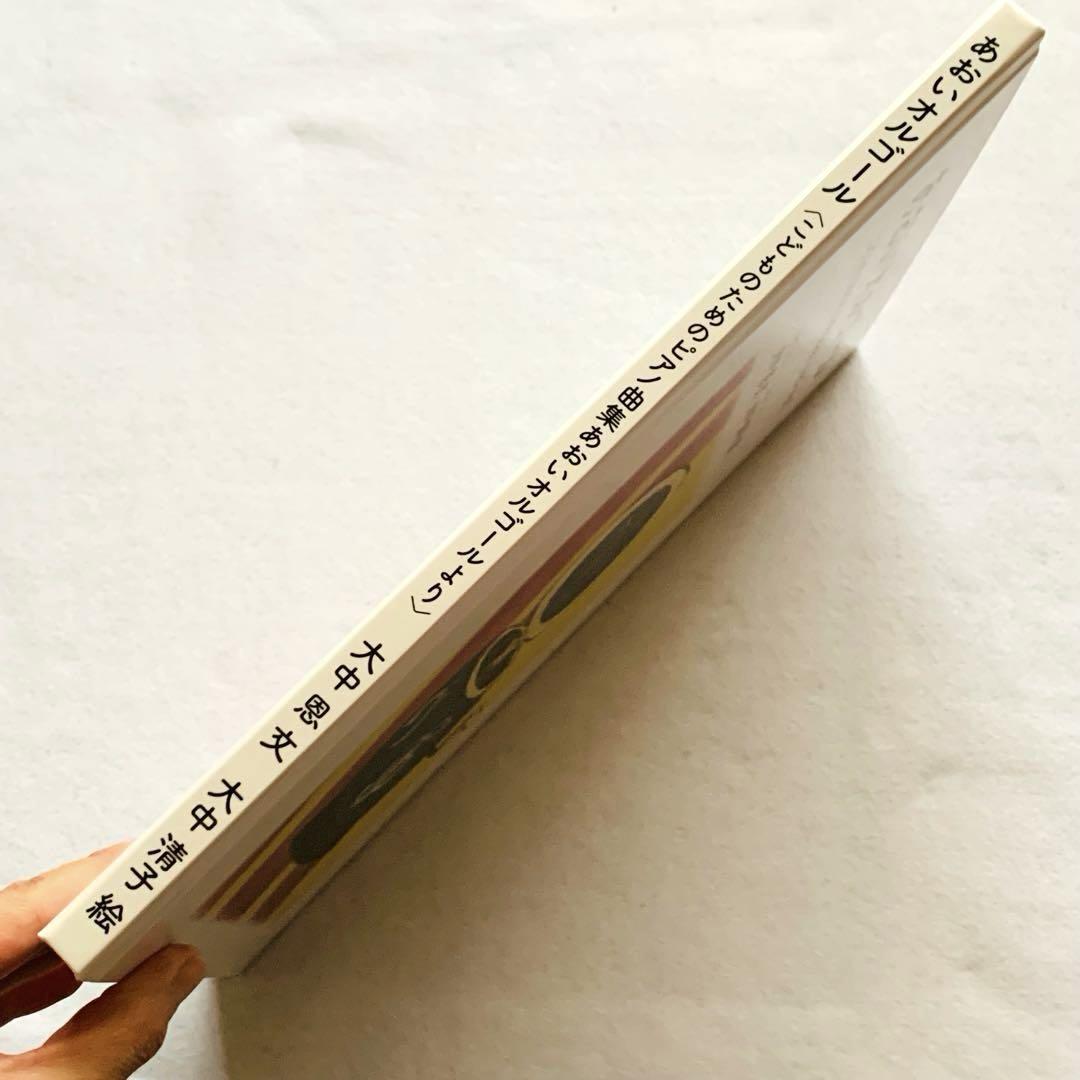 あおいオルゴール〈こどものためのピアノ曲集あおいオルゴールより〉 大中 恩 文 大中 清子 絵